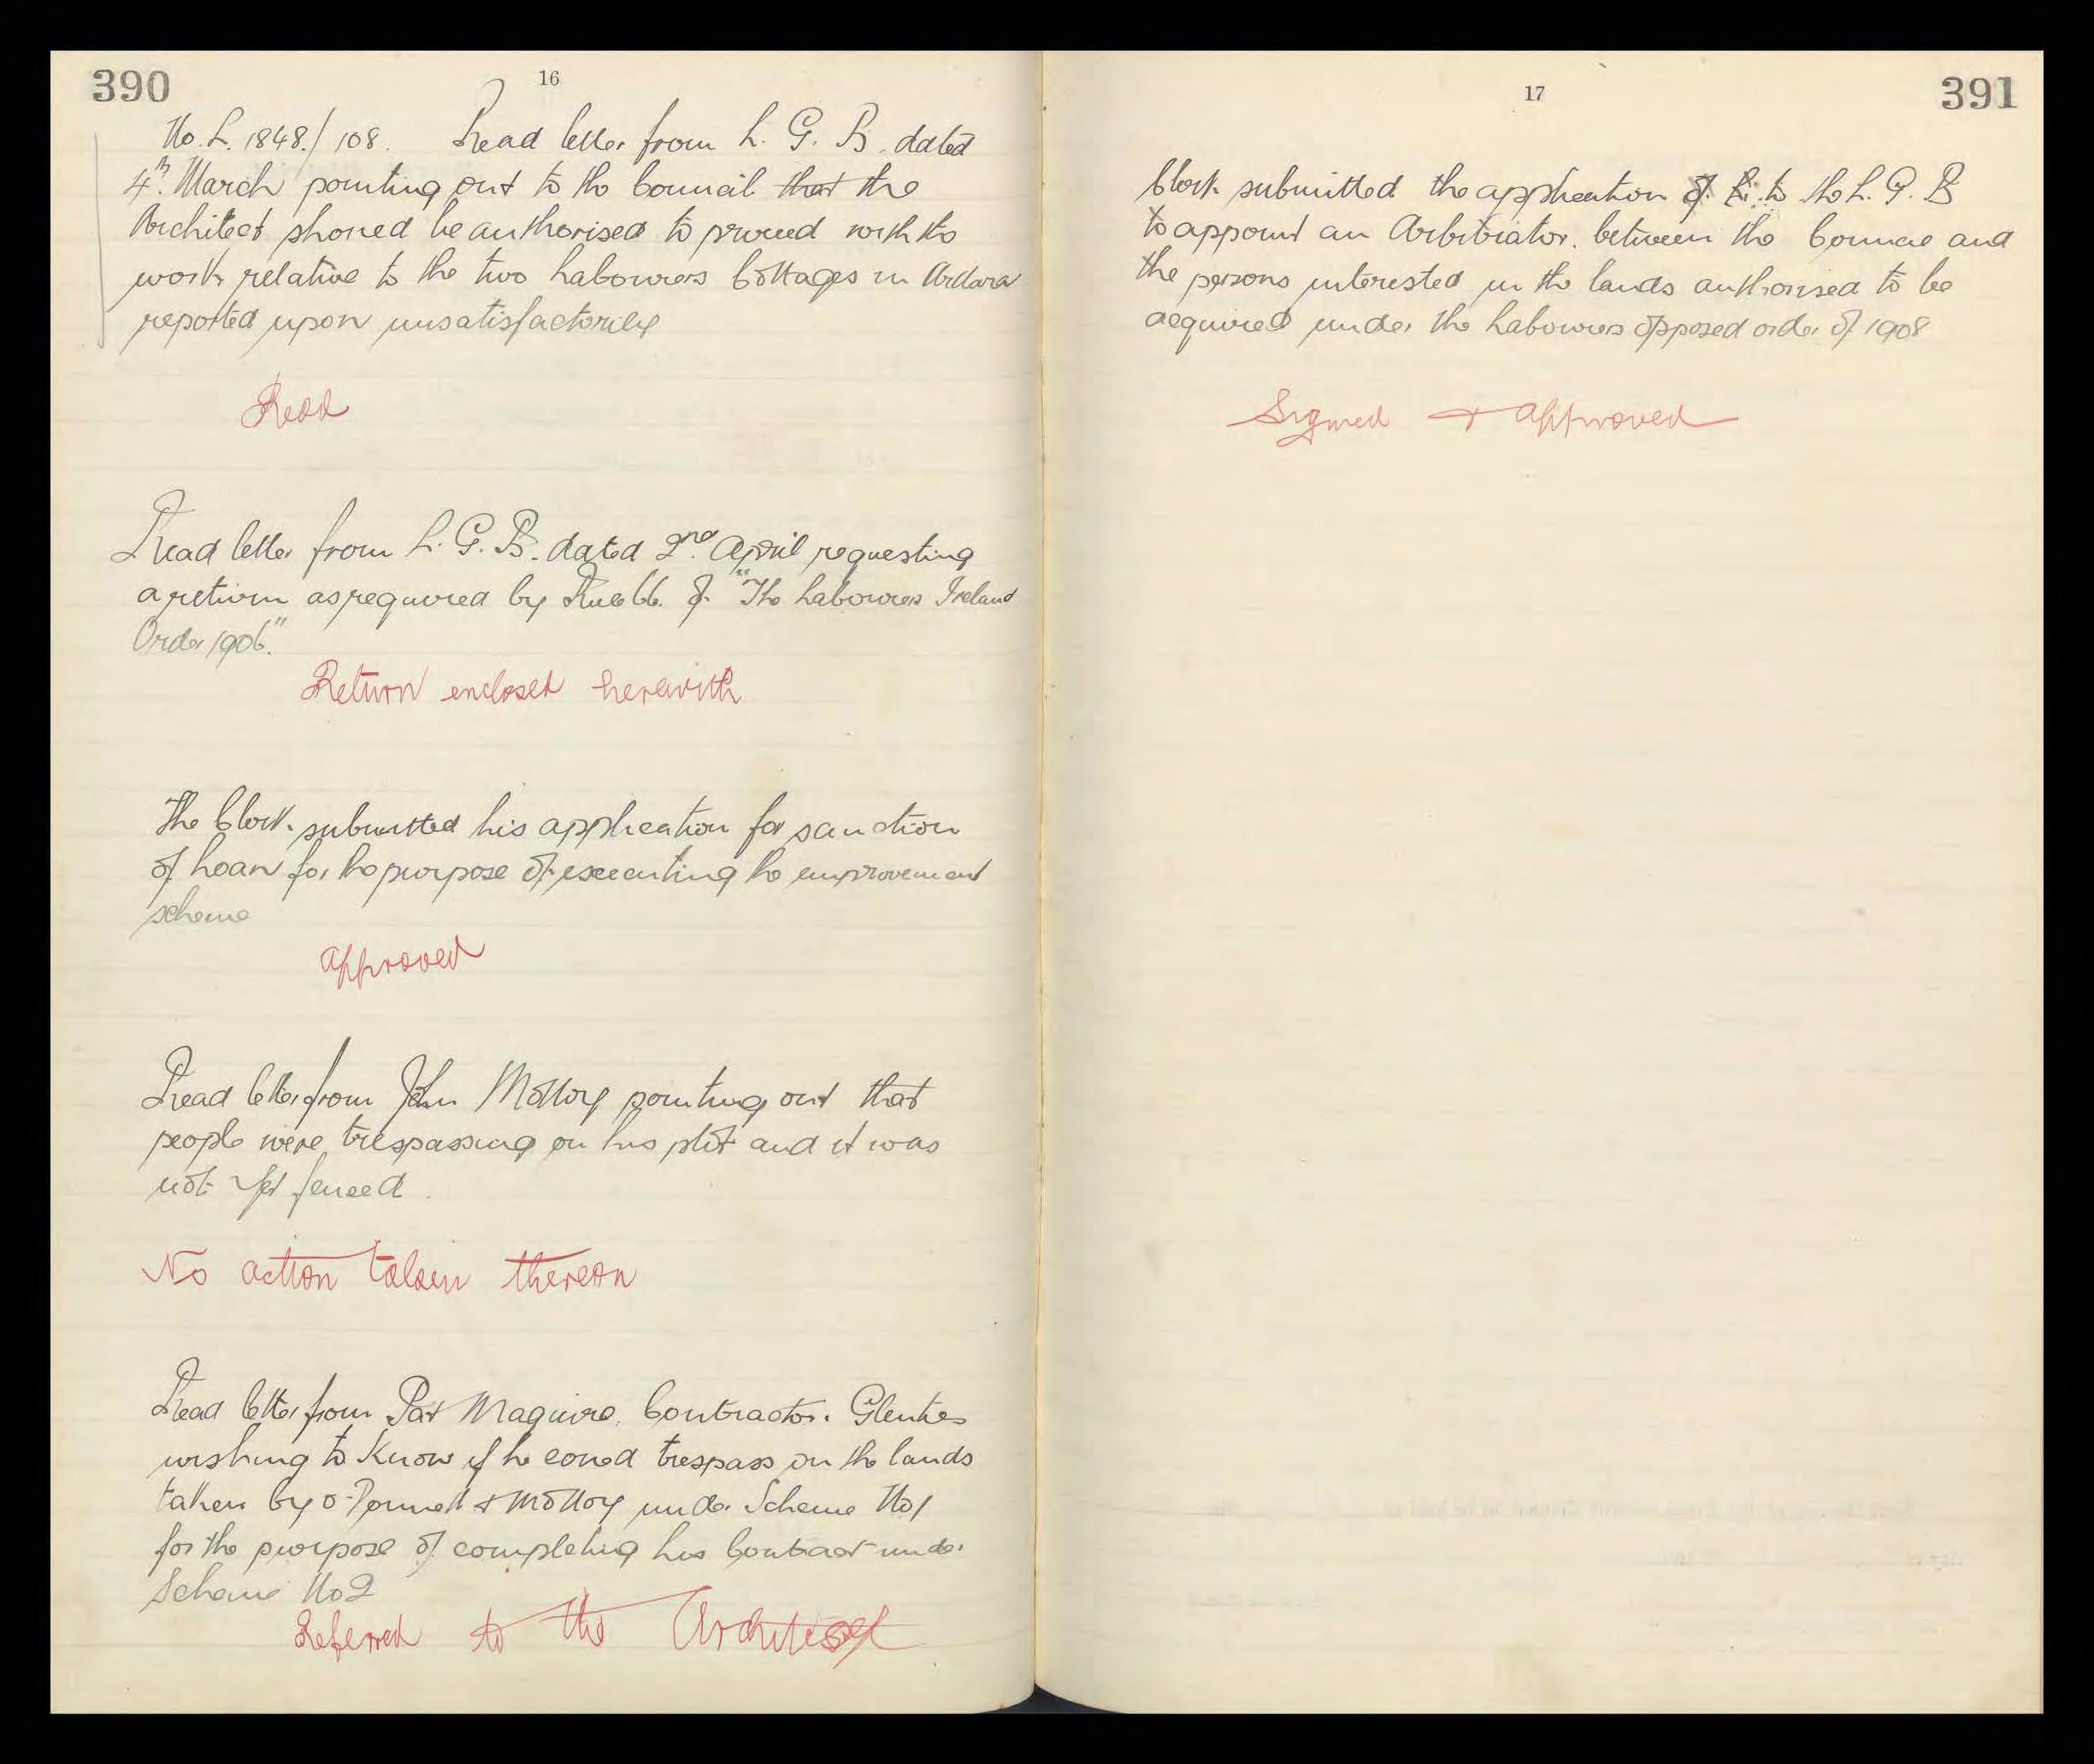 390
16
No. L. 1848./108. Read letter from L. G. B. dated
4th. March pointing out to the Council that the
Architect should be authorised to proceed with the
work relative to the two Labourers Cottages in Ardara
reported upon unsatisfactorily
Read
Read letter from L. G. B. dated 2nd. April requesting
a return as required by Rule 66. of "The Labourers Ireland
Order 1906."
Return enclosed herewith
The Clerk submitted his application for sanction
of Loan for the purpose of executing the improvement
scheme
Approved
Read letter from John Molloy pointing out that
people were trespassing on his plot and it was
not yet fenced.
No action taken thereon
Read letter from Pat Maguire. Contractor. Glenties
wishing to know if he could trespass on the lands
taken by O'Donnell & Molloy under Scheme No 1
for the purpose of completing his Contract under
Scheme No 2
Referred to the Architect
17
391
Clerk submitted the application to the L. G. B
to appoint an Arbitrator. between the Council and
the persons interested in the lands authorised to be
acquired under the Labourers opposed order of 1908
Signed & approved